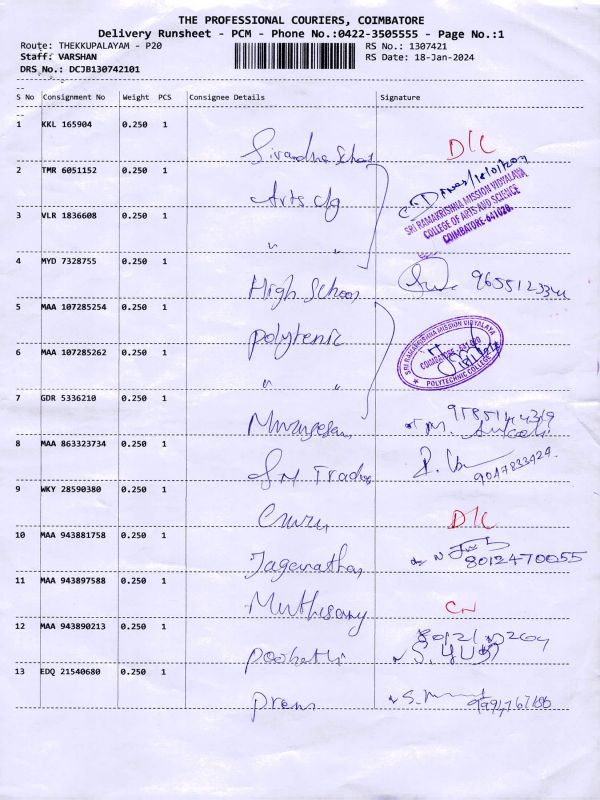 THE PROFESSIONAL COURIERS, COIMBATORE
Delivery Runsheet - PCM - Phone No.:0422-3505555 - Page No.:1
Route: THEKKUPALAYAM - P20 RS No.: 1307421
Staff: VARSHAN RS Date: 18-Jan-2024
DRS No.: DCJB130742101
S No Consignment No Weight PCS Consignee Details Signature
1 KKL 165904 0.250 1 D/C
2 TMR 6051152 0.250 1 Arts clg
SRI RAMAKRISHNA MISSION VIDYALAYA
COLLEGE OF ARTS AND SCIENCE
COIMBATORE-641020.
3 VLR 1836608 0.250 1 " "
4 MYD 7328755 0.250 1 High School
5 MAA 107285254 0.250 1 polytenic
SRI RAMAKRISHNA MISSION VIDYALAYA
POLYTECHNIC COLLEGE
6 MAA 107285262 0.250 1 " "
7 GDR 5336210 0.250 1 Murugesan
8 MAA 863323734 0.250 1
9 WKY 28590380 0.250 1 D/C
10 MAA 943881758 0.250 1 Jaganathan 8012470055
11 MAA 943897588 0.250 1 Muthusamy CN
12 MAA 943890213 0.250 1
13 EDQ 21540680 0.250 1 prem